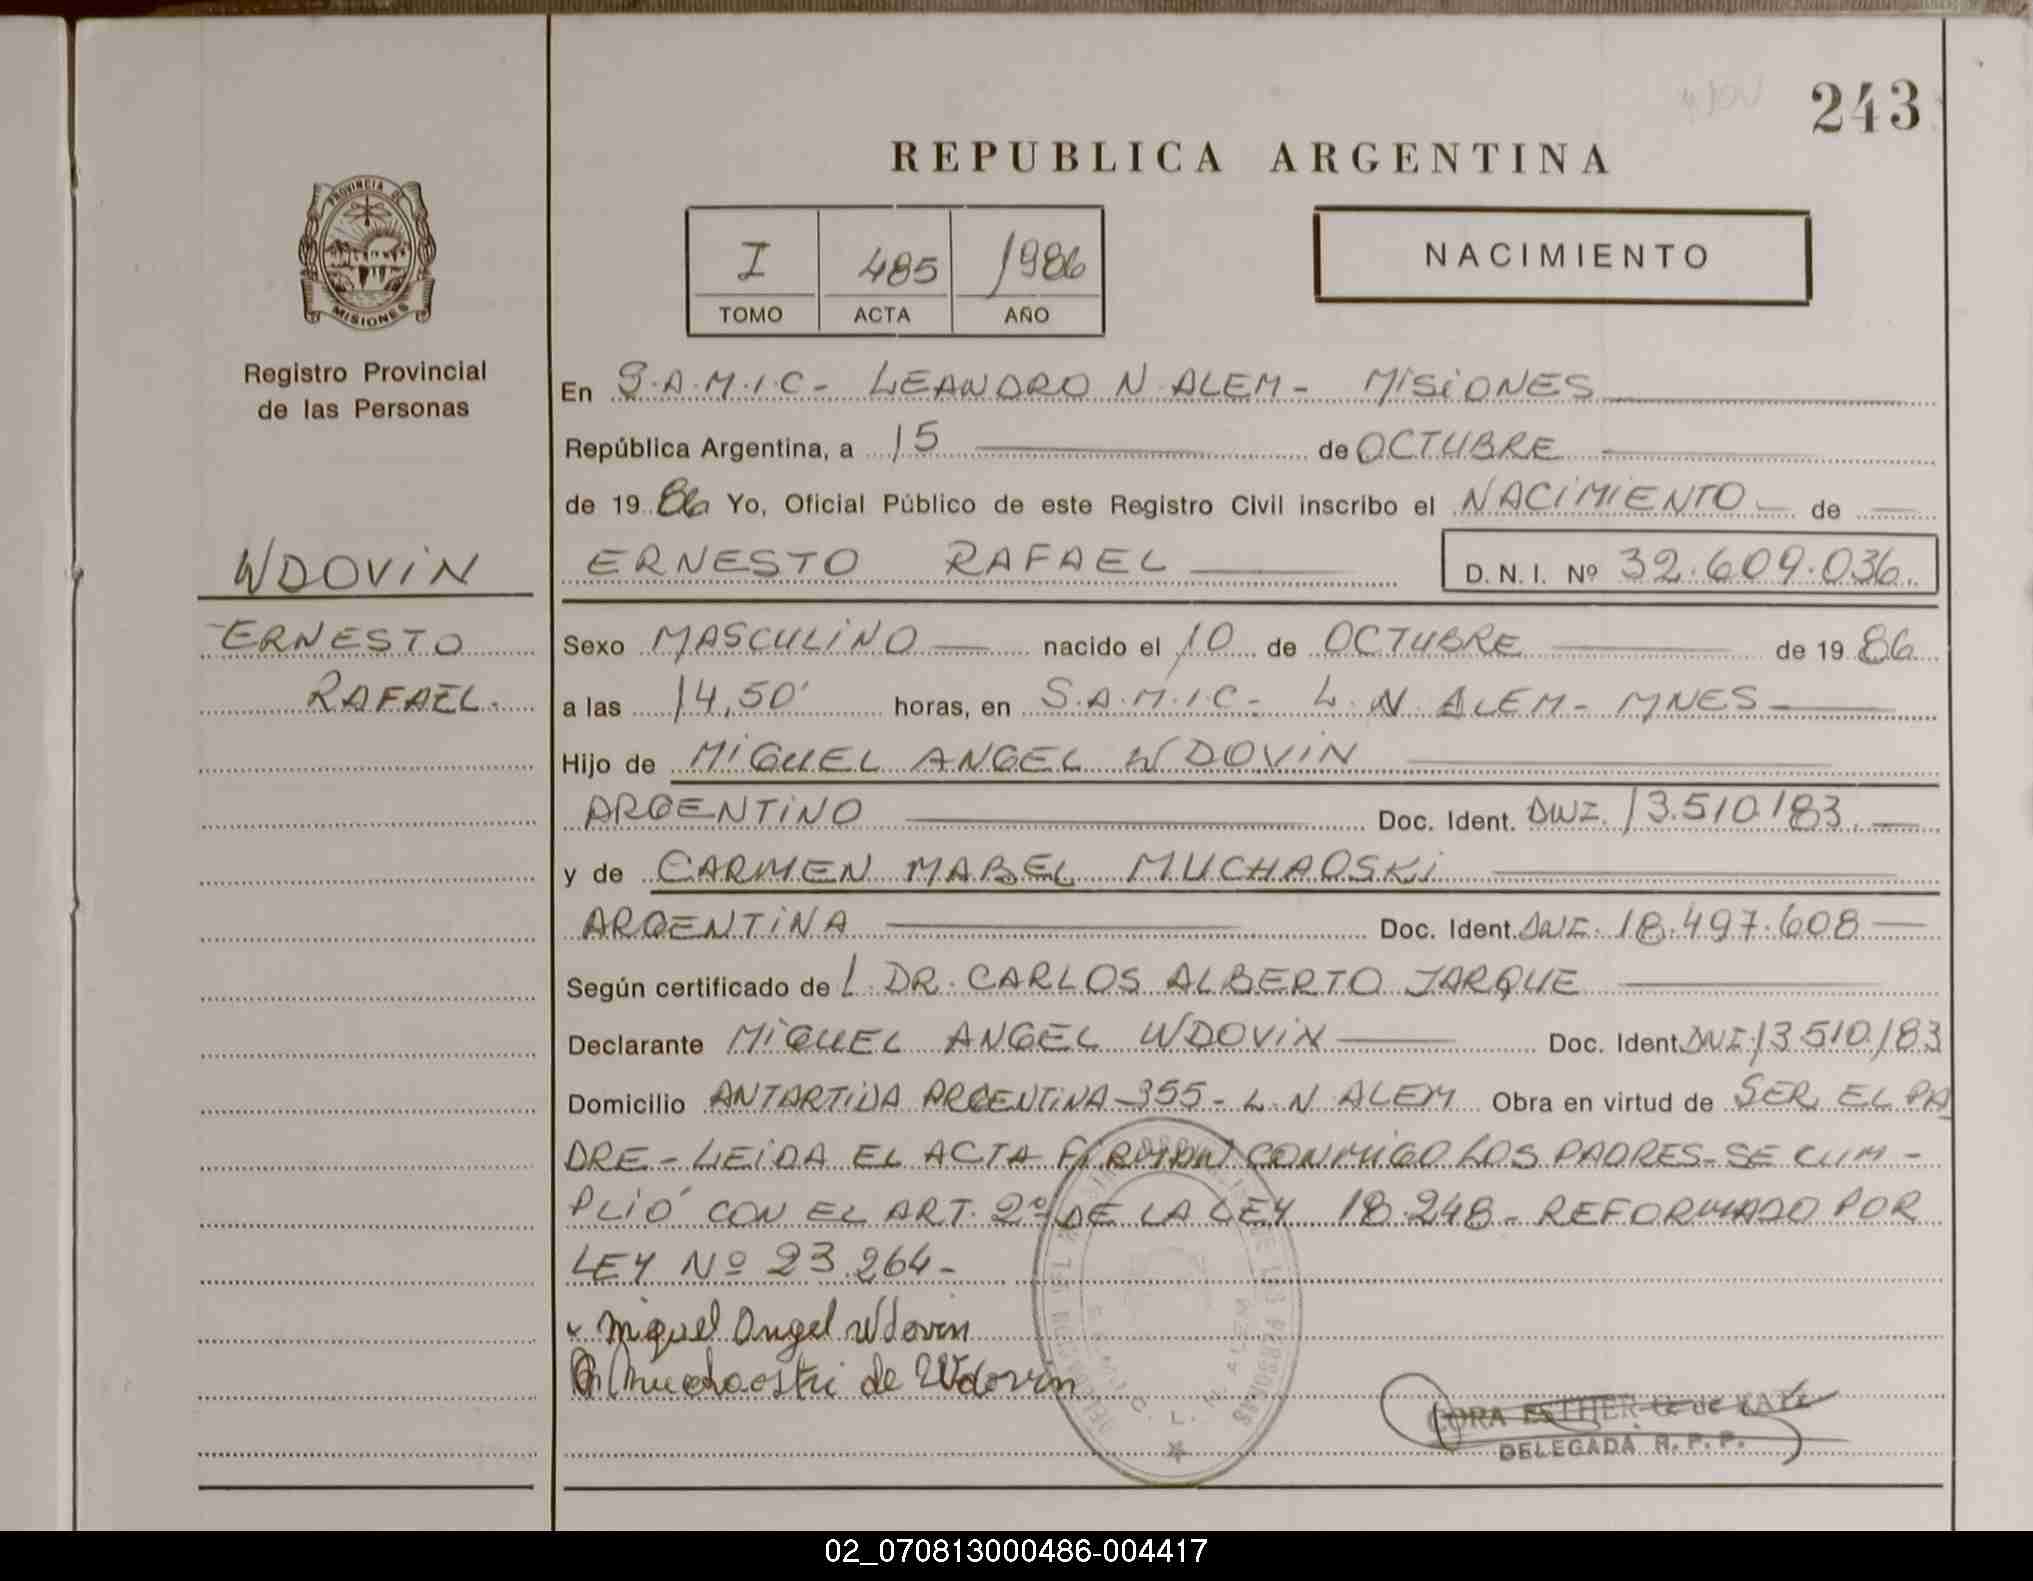 243
REPUBLICA ARGENTINA
PROVINCIA DE
MISIONES
I 485 1986
TOMO ACTA AÑO
NACIMIENTO
Registro Provincial
de las Personas
WDOVIN
ERNESTO
RAFAEL.
En S.A.M.I.C- LEANDRO N. ALEM- MISIONES
República Argentina, a 15 de OCTUBRE
de 1986 Yo, Oficial Público de este Registro Civil inscribo el NACIMIENTO de
ERNESTO RAFAEL D. N. I. Nº 32.609.036.
Sexo MASCULINO nacido el 10 de OCTUBRE de 1986
a las 14,50' horas, en S.A.M.I.C- L. N. ALEM- MNES
Hijo de MIGUEL ANGEL WDOVIN
ARGENTINO Doc. Ident. DNI. 13.510.183.
y de CARMEN MABEL MUCHAOSKI
ARGENTINA Doc. Ident. DNI. 18.497.608
Según certificado de L. DR. CARLOS ALBERTO JARQUE
Declarante MIGUEL ANGEL WDOVIN Doc. Ident. DNI. 13.510.183
Domicilio ANTARTIDA ARGENTINA-355- L. N ALEM Obra en virtud de SER EL PA
DRE- LEIDA EL ACTA FIRMAN CONMIGO LOS PADRES- SE CUM-
PLIÓ CON EL ART. 2º DE LA LEY 18.248- REFORMADO POR
LEY Nº 23.264-
Miguel Angel Wdovin
Muchaoski de Wdovin
CORA ESTHER de
DELEGADA R. P. P.
02_070813000486-004417